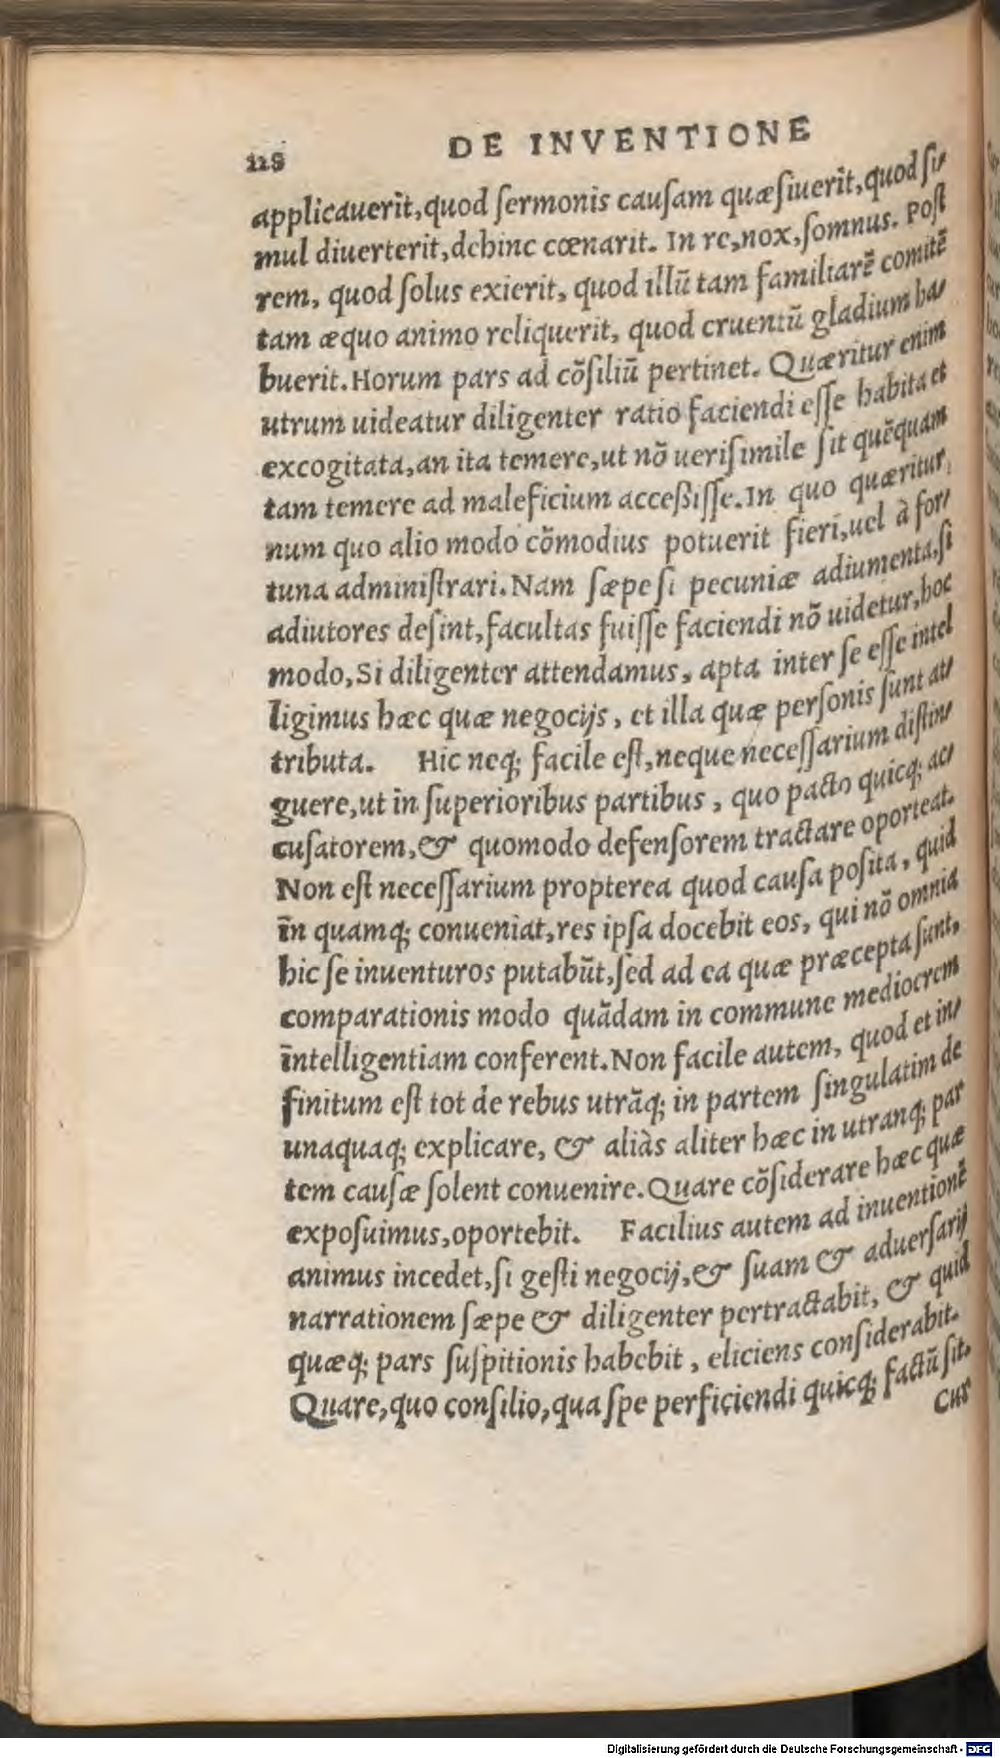 118 DE INVENTIONE
applicauerit,quod ſermonis cauſam quæſiuerit,quod ſi/
mul diuerterit,dehinc cœnarit. In re,nox,ſomnus. Poſt
rem, quod ſolus exierit, quod illũ tam familiarẽ comitẽ
tam æquo animo reliquerit, quod cruentũ gladium ha/
buerit.Horum pars ad cõſiliũ pertinet. Quæritur enim
utrum uideatur diligenter ratio faciendi eſſe habita et
excogitata,an ita temere,ut nõ ueriſimile ſit quẽquam
tam temere ad maleficium acceßiſſe.In quo quæritur,
num quo alio modo cõmodius potuerit fieri,uel à for/
tuna adminiſtrari.Nam ſæpe ſi pecuniæ adiumenta,ſi
adiutores deſint,facultas fuiſſe faciendi nõ uidetur,hoc
modo,Si diligenter attendamus, apta inter ſe eſſe intel
ligimus hæc quæ negocijs, et illa quæ perſonis ſunt at/
tributa. Hic neq; facile eſt,neque neceſſarium diſtin/
guere,ut in ſuperioribus partibus, quo pacto quicq; ac/
cuſatorem,& quomodo defenſorem tractare oporteat.
Non eſt neceſſarium propterea quod cauſa poſita, quid
in quamq; conueniat,res ipſa docebit eos, qui nõ omnia
hic ſe inuenturos putabũt,ſed ad ea quæ præcepta ſunt,
comparationis modo quãdam in commune mediocrem
intelligentiam conferent.Non facile autem, quod et in/
finitum eſt tot de rebus utrãq; in partem ſingulatim de
unaquaq; explicare, & aliàs aliter hæc in utranq; par
tem cauſæ ſolent conuenire.Quare cõſiderare hæc quæ
expoſuimus,oportebit. Facilius autem ad inuentionẽ
animus incedet,ſi geſti negocij,& ſuam & aduerſarij
narrationem ſæpe & diligenter pertractabit, & quid
quæq; pars ſuſpitionis habebit, eliciens conſiderabit.
Quare,quo conſilio,qua ſpe perficiendi quicq; factũ ſit.
Cur
Digitalisierung gefördert durch die Deutsche Forschungsgemeinschaft - DFG